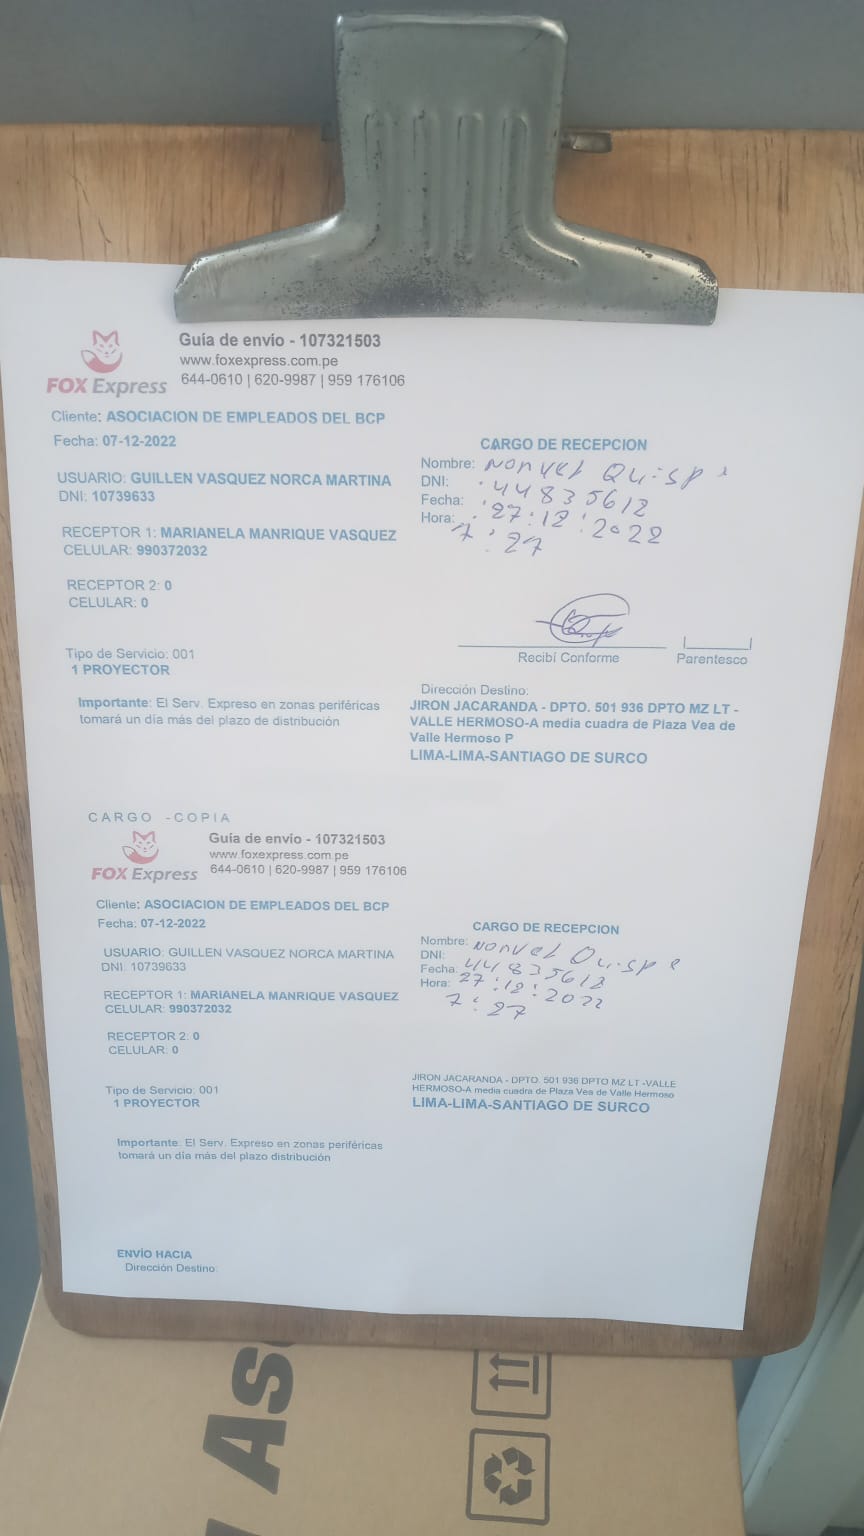 Guía de envío - 107321503
www.foxexpress.com.pe
644-0610 | 620-9987 | 959 176106
FOX Express
Cliente: ASOCIACION DE EMPLEADOS DEL BCP
Fecha: 07-12-2022
USUARIO: GUILLEN VASQUEZ NORCA MARTINA
DNI: 10739633
RECEPTOR 1: MARIANELA MANRIQUE VASQUEZ
CELULAR: 990372032
RECEPTOR 2: 0
CELULAR: 0
Tipo de Servicio: 001
1 PROYECTOR
Importante: El Serv. Expreso en zonas periféricas
tomará un día más del plazo de distribución
CARGO DE RECEPCION
Nombre: Quispe
DNI: 44835612
Fecha: 27:12:2022
Hora: 7:27
Recibí Conforme
Parentesco
Dirección Destino:
JIRON JACARANDA - DPTO. 501 936 DPTO MZ LT -
VALLE HERMOSO-A media cuadra de Plaza Vea de
Valle Hermoso P
LIMA-LIMA-SANTIAGO DE SURCO
CARGO -COPIA
Guía de envío - 107321503
www.foxexpress.com.pe
644-0610 | 620-9987 | 959 176106
FOX Express
Cliente: ASOCIACION DE EMPLEADOS DEL BCP
Fecha: 07-12-2022
USUARIO: GUILLEN VASQUEZ NORCA MARTINA
DNI: 10739633
RECEPTOR 1: MARIANELA MANRIQUE VASQUEZ
CELULAR: 990372032
RECEPTOR 2: 0
CELULAR: 0
Tipo de Servicio: 001
1 PROYECTOR
Importante: El Serv. Expreso en zonas periféricas
tomará un día más del plazo distribución
CARGO DE RECEPCION
Nombre: Quispe
DNI: 44835612
Fecha: 27:12:2022
Hora: 7:27
JIRON JACARANDA - DPTO. 501 936 DPTO MZ LT -VALLE
HERMOSO-A media cuadra de Plaza Vea de Valle Hermoso
LIMA-LIMA-SANTIAGO DE SURCO
ENVÍO HACIA
Dirección Destino: